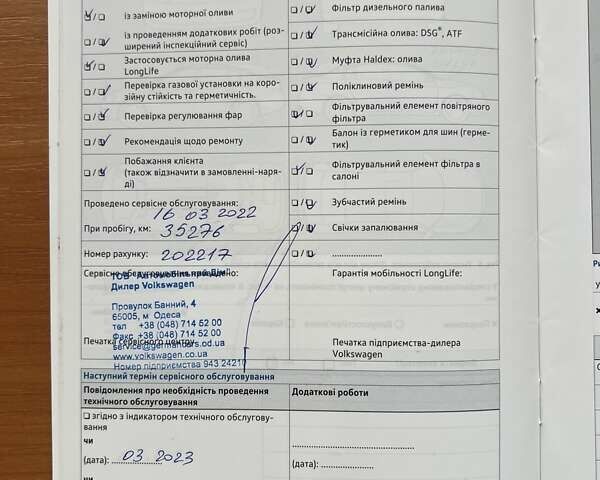 із заміною моторної оливи
із проведенням додаткових робіт (роз-
ширений інспекційний сервіс)
Застосовується моторна олива
LongLife
Перевірка газової установки на коро-
зійну стійкість та герметичність.
Перевірка регулювання фар
Рекомендація щодо ремонту
Побажання клієнта
(також відзначити в замовленні-наря-
ді)
Проведено сервісне обслуговування:
16 03 2022
При пробігу, км: 35276
Номер рахунку: 202217
Сервісне обслуговування проведено:
ТОВ "Автомобільний Дім"
Дилер Volkswagen
Провулок Банний, 4
65005, м Одеса
тел +38 (048) 714 52 00
Факс +38 (048) 714 52 00
service@germanders.od.ua
Печатка сервісного центру
www.volkswagen.od.ua
Номер підприємства 943 24210
Фільтр дизельного палива
Трансмісійна олива: DSG®, ATF
Муфта Haldex: олива
Поліклиновий ремінь
Фільтрувальний елемент повітряного
фільтра
Балон із герметиком для шин (герме-
тик)
Фільтрувальний елемент фільтра в
салоні
Зубчастий ремінь
Свічки запалювання
....................
Гарантія мобільності LongLife:
Печатка підприємства-дилера
Volkswagen
Наступний термін сервісного обслуговування
Повідомлення про необхідність проведення
технічного обслуговування
згідно з індикатором технічного обслугову-
вання
чи
(дата): 03 2023
чи
Додаткові роботи
(дата): ....................